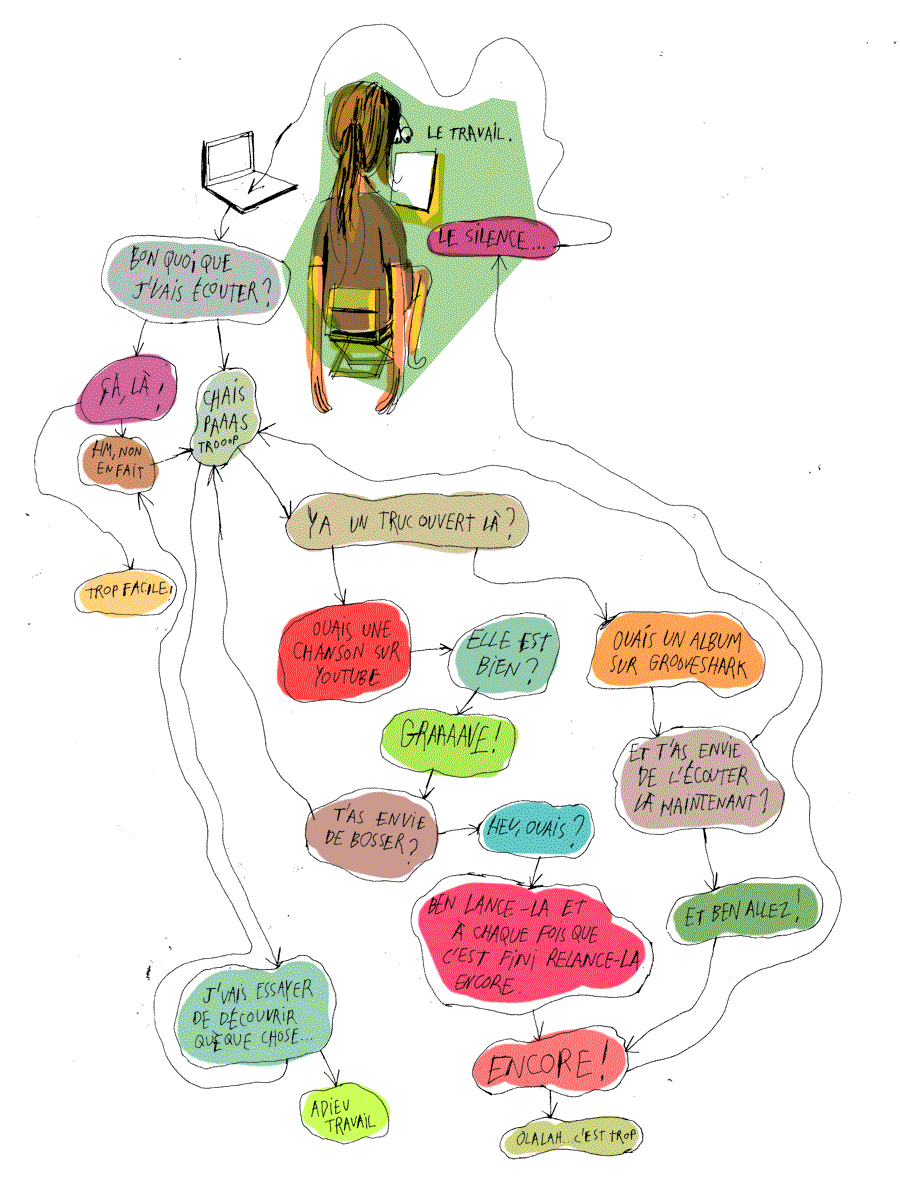 LE TRAVAIL.
LE SILENCE...
BON QUOI, QUE
J'VAIS ÉCOUTER?
ÇA, LÀ!
CHAIS
PAAAS
TROOOP
HM, NON
EN FAIT
TROP FACILE!
Y A UN TRUC OUVERT LÀ?
OUAIS UNE
CHANSON SUR
YOUTUBE
ELLE EST
BIEN?
OUAIS UN ALBUM
SUR GROOVESHARK
GRAAAAVE!
ET T'AS ENVIE
DE L'ÉCOUTER
LÀ MAINTENANT?
T'AS ENVIE
DE BOSSER?
HEU, OUAIS?
BEN LANCE-LA ET
À CHAQUE FOIS QUE
C'EST FINI RELANCE-LA
ENCORE.
ET BEN ALLEZ!
J'VAIS ESSAYER
DE DÉCOUVRIR
QUÈQUE CHOSE...
ENCORE!
ADIEU
TRAVAIL
OLALAH... C'EST TROP